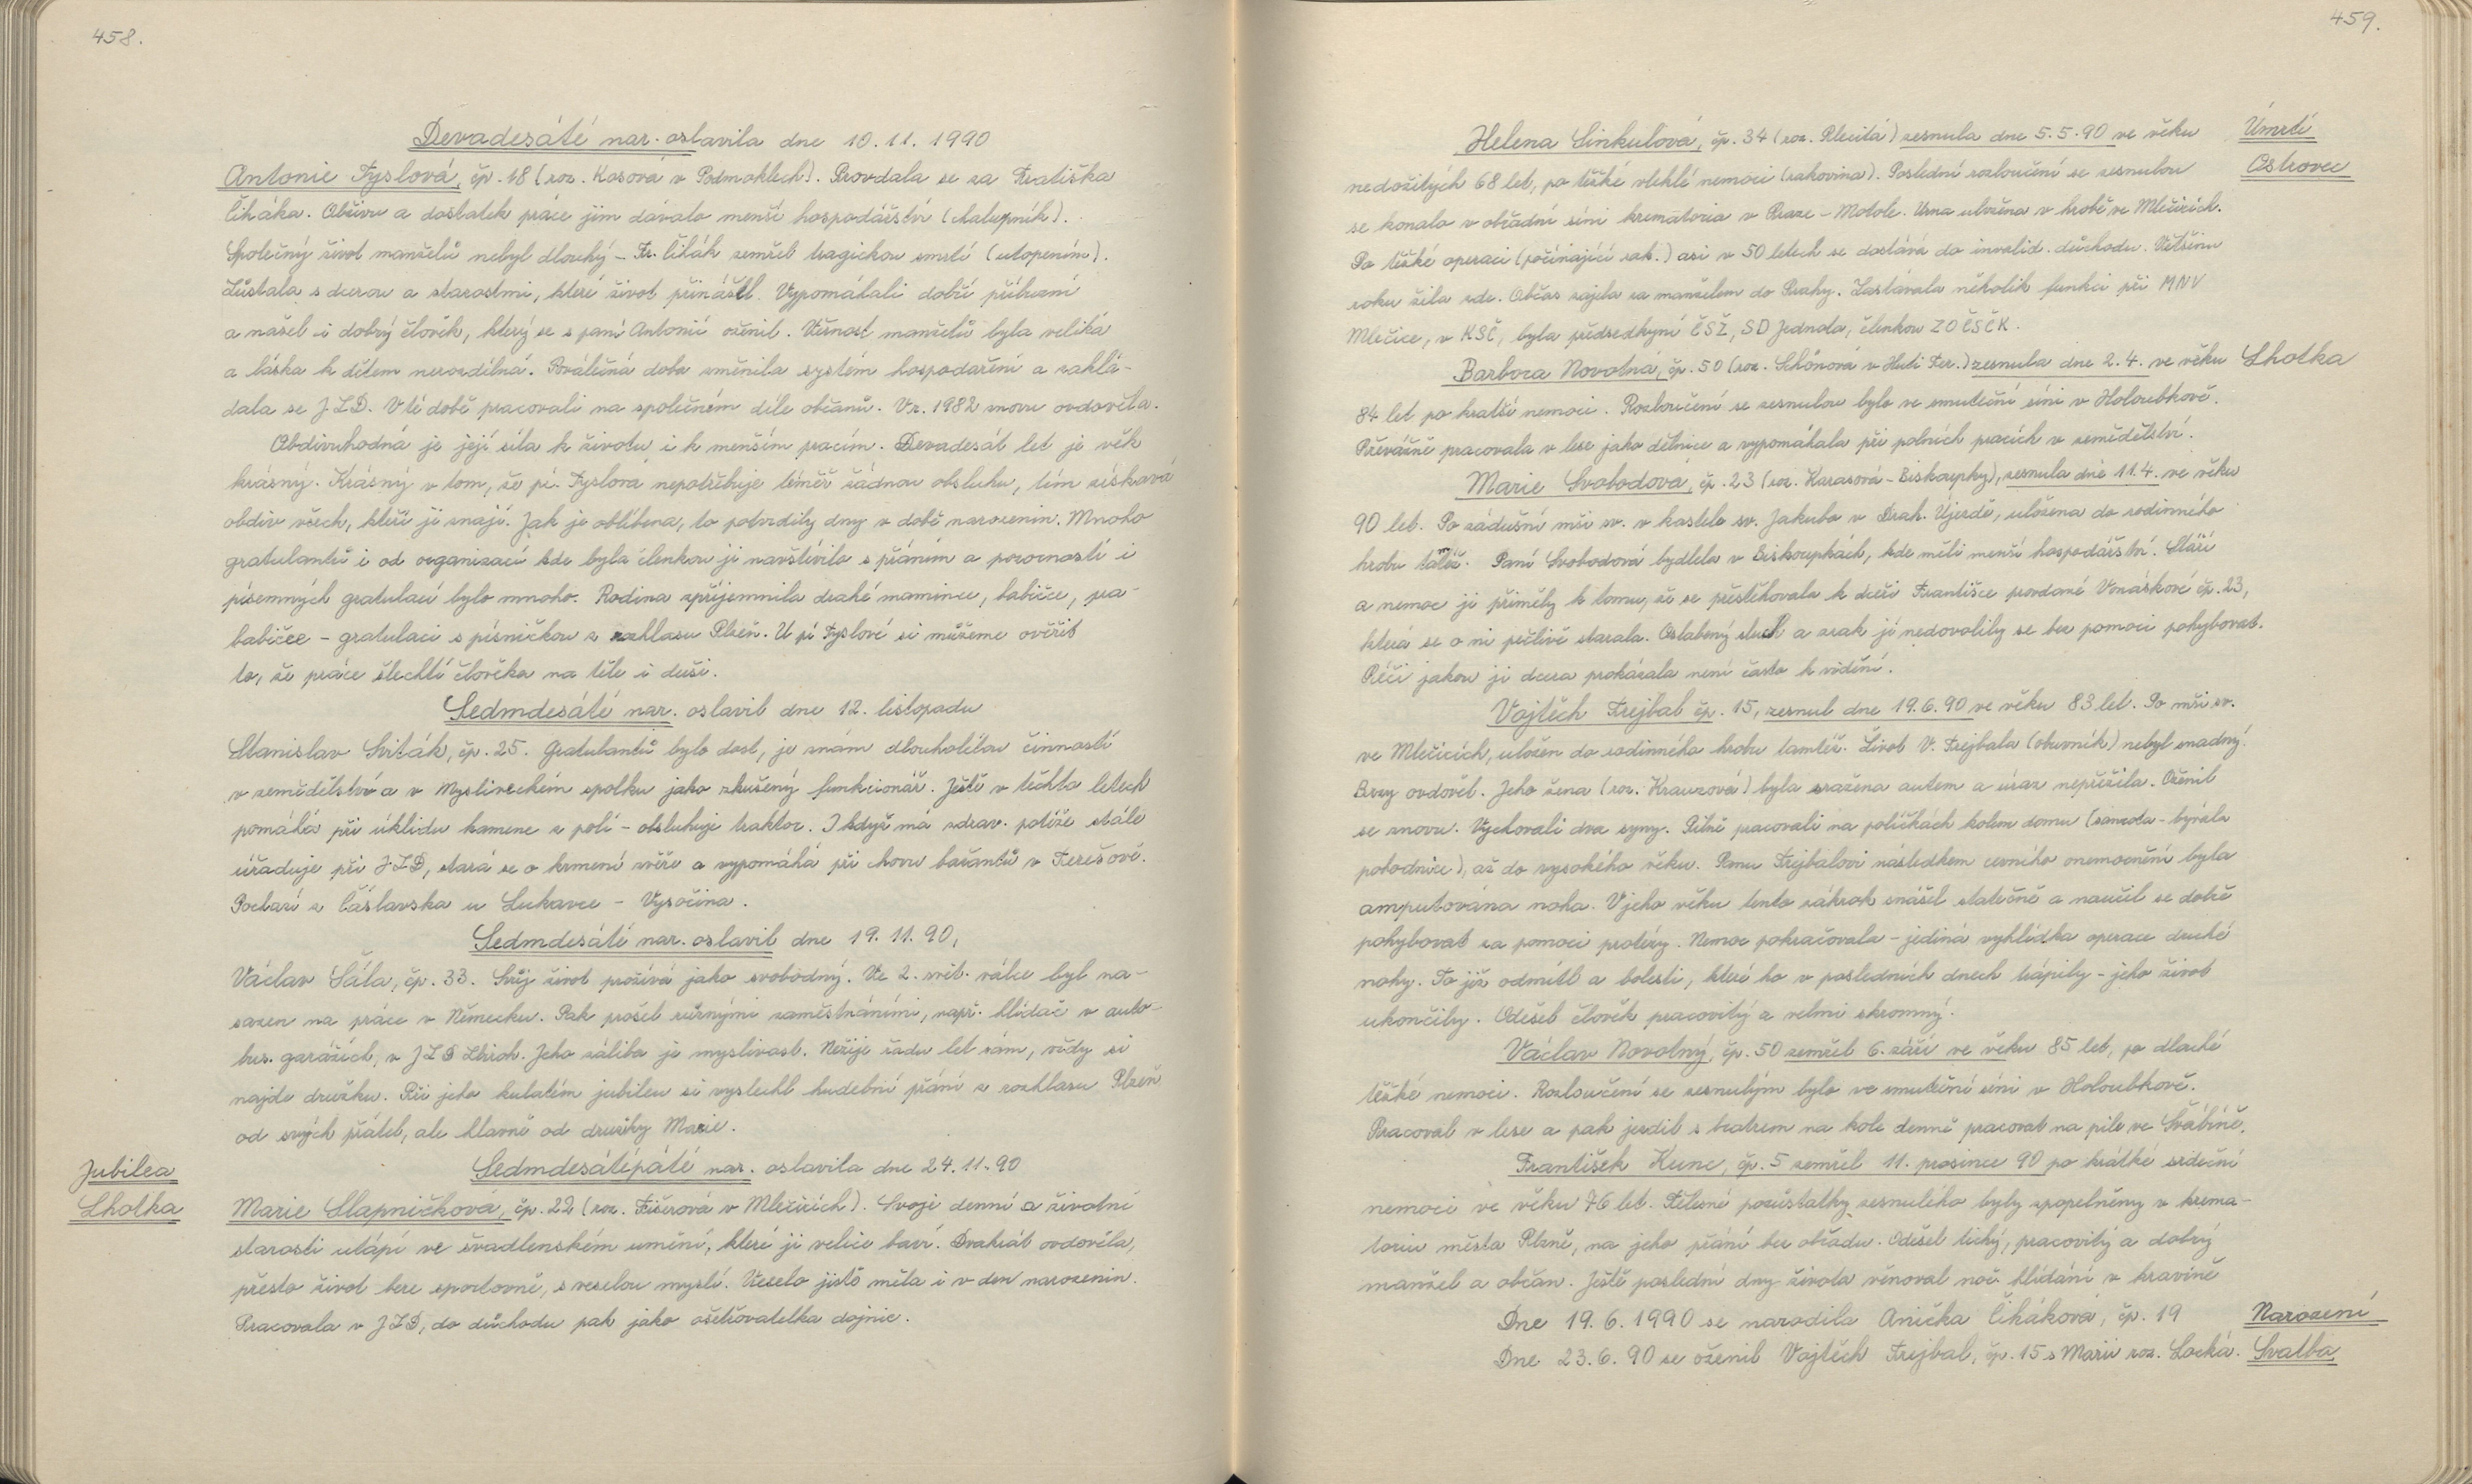 458.
Devadesáté nar. oslavila dne 10.11.1990
Antonie Tyslová, čp. 18 (roz. Kosová v Podmoklech). Provdala se za Fratiška
Čiháka. Obživu a dostatek práce jim dávalo menší hospodářství (chalupník).
Společný život manželů nebyl dlouhý – Fr. Čihák zemřel tragickou smrtí (utopením).
Zůstala s dcerou a starostmi, které život přinášel. Vypomáhali dobří příbuzní
a našel i dobrý člověk, který se s paní Antonií oženil. Věrnost manželů byla veliká
a láska k dětem nerozdílná. Poválečná doba změnila systém hospodaření a zaklá-
dala se JZD. V té době pracovali na společném díle občanů. V r. 1982 znovu ovdověla.
Obdivuhodná je její síla k životu i k menším pracím. Devadesát let je věk
krásný. Krásný v tom, že pí. Tyslová nepotřebuje téměř žádnou obsluhu, tím získává
obdiv všech, kteří ji znají. Jak je oblíbena, to potvrdily dny v době narozenin. Mnoho
gratulantů i od organizací kde byla členkou ji navštívilo s přáním a pozorností i
písemných gratulací bylo mnoho. Rodina zpříjemnila drahé mamince, babičce, pra-
babičce – gratulaci s písničkou z rozhlasu Plzeň. U pí Tyslové si můžeme ověřit
to, že práce šlechtí člověka na těle i duši.
Sedmdesáté nar. oslavil dne 12. listopadu
Stanislav Sviták, čp. 25. Gratulantů bylo dost, je znám dlouholetou činností
v zemědělství a v Mysliveckém spolku jako zkušený funkcionář. Ještě v těchto letech
pomáhá při úklidu kamene z polí – obsluhuje traktor. I když má zdrav. potíže stále
úřaduje při JZD, stará se o krmení zvěře a vypomáhá při chovu bažantů v Terešově.
Pochází z Čáslavska u Lukavce – Vysočina.
Sedmdesáté nar. oslavil dne 19.11.90,
Václav Šála, čp. 33. Svůj život prožívá jako svobodný. Ve 2. svět. válce byl na-
sazen na práce v Německu. Pak prošel různými zaměstnáními, např. hlídač v auto-
bus. garážích, v JZD Zbiroh. Jeho záliba je myslivost. Nežije řadu let sám, vždy si
najde družku. Při jeho kulatém jubileu si vyslechl hudební přání z rozhlasu Plzeň
od svých přátel, ale hlavně od družky Marie.
Jubilea
Lhotka
Sedmdesátépáté nar. oslavila dne 24.11.90
Marie Slapničková, čp. 22 (roz. Fišerová v Mlečicích). Svoje denní a životní
starosti utápí ve švadlenském umění, které ji velice baví. Dvakrát ovdověla,
přesto život bere sportovně, s veselou myslí. Veselo jistě měla i v den narozenin.
Pracovala v JZD, do důchodu pak jako ošetřovatelka dojnic.
459.
Úmrtí
Ostrovec
Helena Sinkulová, čp. 34 (roz. Plecitá) zesnula dne 5.5.90 ve věku
nedožitých 68 let, po těžké vleklé nemoci (rakovina). Poslední rozloučení se zesnulou
se konalo v obřadní síni krematoria v Praze – Motole. Urna uložena v hrobě ve Mlečicích.
Po těžké operaci (počínající rak.) asi v 50 letech se dostává do invalid. důchodu. Většinu
roku žila zde. Občas zajela za manželem do Prahy. Zastávala několik funkcí při MNV
Mlečice, v KSČ, byla předsedkyní ČSŽ, SD Jednota, členkou ZO ČSČK.
Lhotka
Barbora Novotná, čp. 50 (roz. Schönová v Huti Ter.) zesnula dne 2.4. ve věku
84 let po kratší nemoci. Rozloučení se zesnulou bylo ve smuteční síni v Holoubkově.
Převážně pracovala v lese jako dělnice a vypomáhala při polních pracích v zemědělství.
Marie Svobodová, čp. 23 (roz. Karasová – Biskoupky), zesnula dne 11.4. ve věku
90 let. Po zádušní mši sv. v kostele sv. Jakuba v Drah. Újezdě, uložena do rodinného
hrobu tamtéž. Paní Svobodová bydlela v Biskoupkách, kde měli menší hospodářství. Stáří
a nemoc ji přiměly k tomu, že se přestěhovala k dceři Františce provdané Vonáskové čp. 23,
která se o ni pečlivě starala. Oslabený sluch a zrak jí nedovolily se bez pomoci pohybovat.
Péči jakou jí dcera prokázala není často k vidění.
Vojtěch Frejbal čp. 15, zesnul dne 19.6.90 ve věku 83 let. Po mši sv.
ve Mlečicích, uložen do rodinného hrobu tamtéž. Život V. Frejbala (obuvník) nebyl snadný.
Brzy ovdověl. Jeho žena (roz. Krauzová) byla sražena autem a úraz nepřežila. Oženil
se znovu. Vychovali dva syny. Pilně pracovali na políčkách kolem domu (samota – bývala
pohodnice), až do vysokého věku. Panu Frejbalovi následkem cevního onemocnění byla
amputována noha. V jeho věku tento zákrok snášel statečně a naučil se dobře
pohybovat za pomoci protézy. Nemoc pokračovala – jediná vyhlídka operace druhé
nohy. To již odmítl a bolesti, které ho v posledních dnech trápily – jeho život
ukončily. Odešel člověk pracovitý a velmi skromný.
Václav Novotný, čp. 50 zemřel 6. září ve věku 85 let, po dlouhé
těžké nemoci. Rozloučení se zesnulým bylo ve smuteční síni v Holoubkově.
Pracoval v lese a pak jezdil s bratrem na kole denně pracovat na pile ve Švábíně.
František Kunc, čp. 5 zemřel 11. prosince 90 po krátké srdeční
nemoci ve věku 76 let. Tělesné pozůstatky zesnulého byly zpopelněny v krema-
toriu města Plzně, na jeho přání bez obřadu. Odešel tichý, pracovitý a dobrý
manžel a občan. Ještě poslední dny života věnoval noč. hlídání v kravíně
Dne 19.6.1990 se narodila Anička Čiháková, čp. 19
Narození
Dne 23.6.90 se oženil Vojtěch Frejbal, čp. 15 s Marií roz. Locká.
Svatba